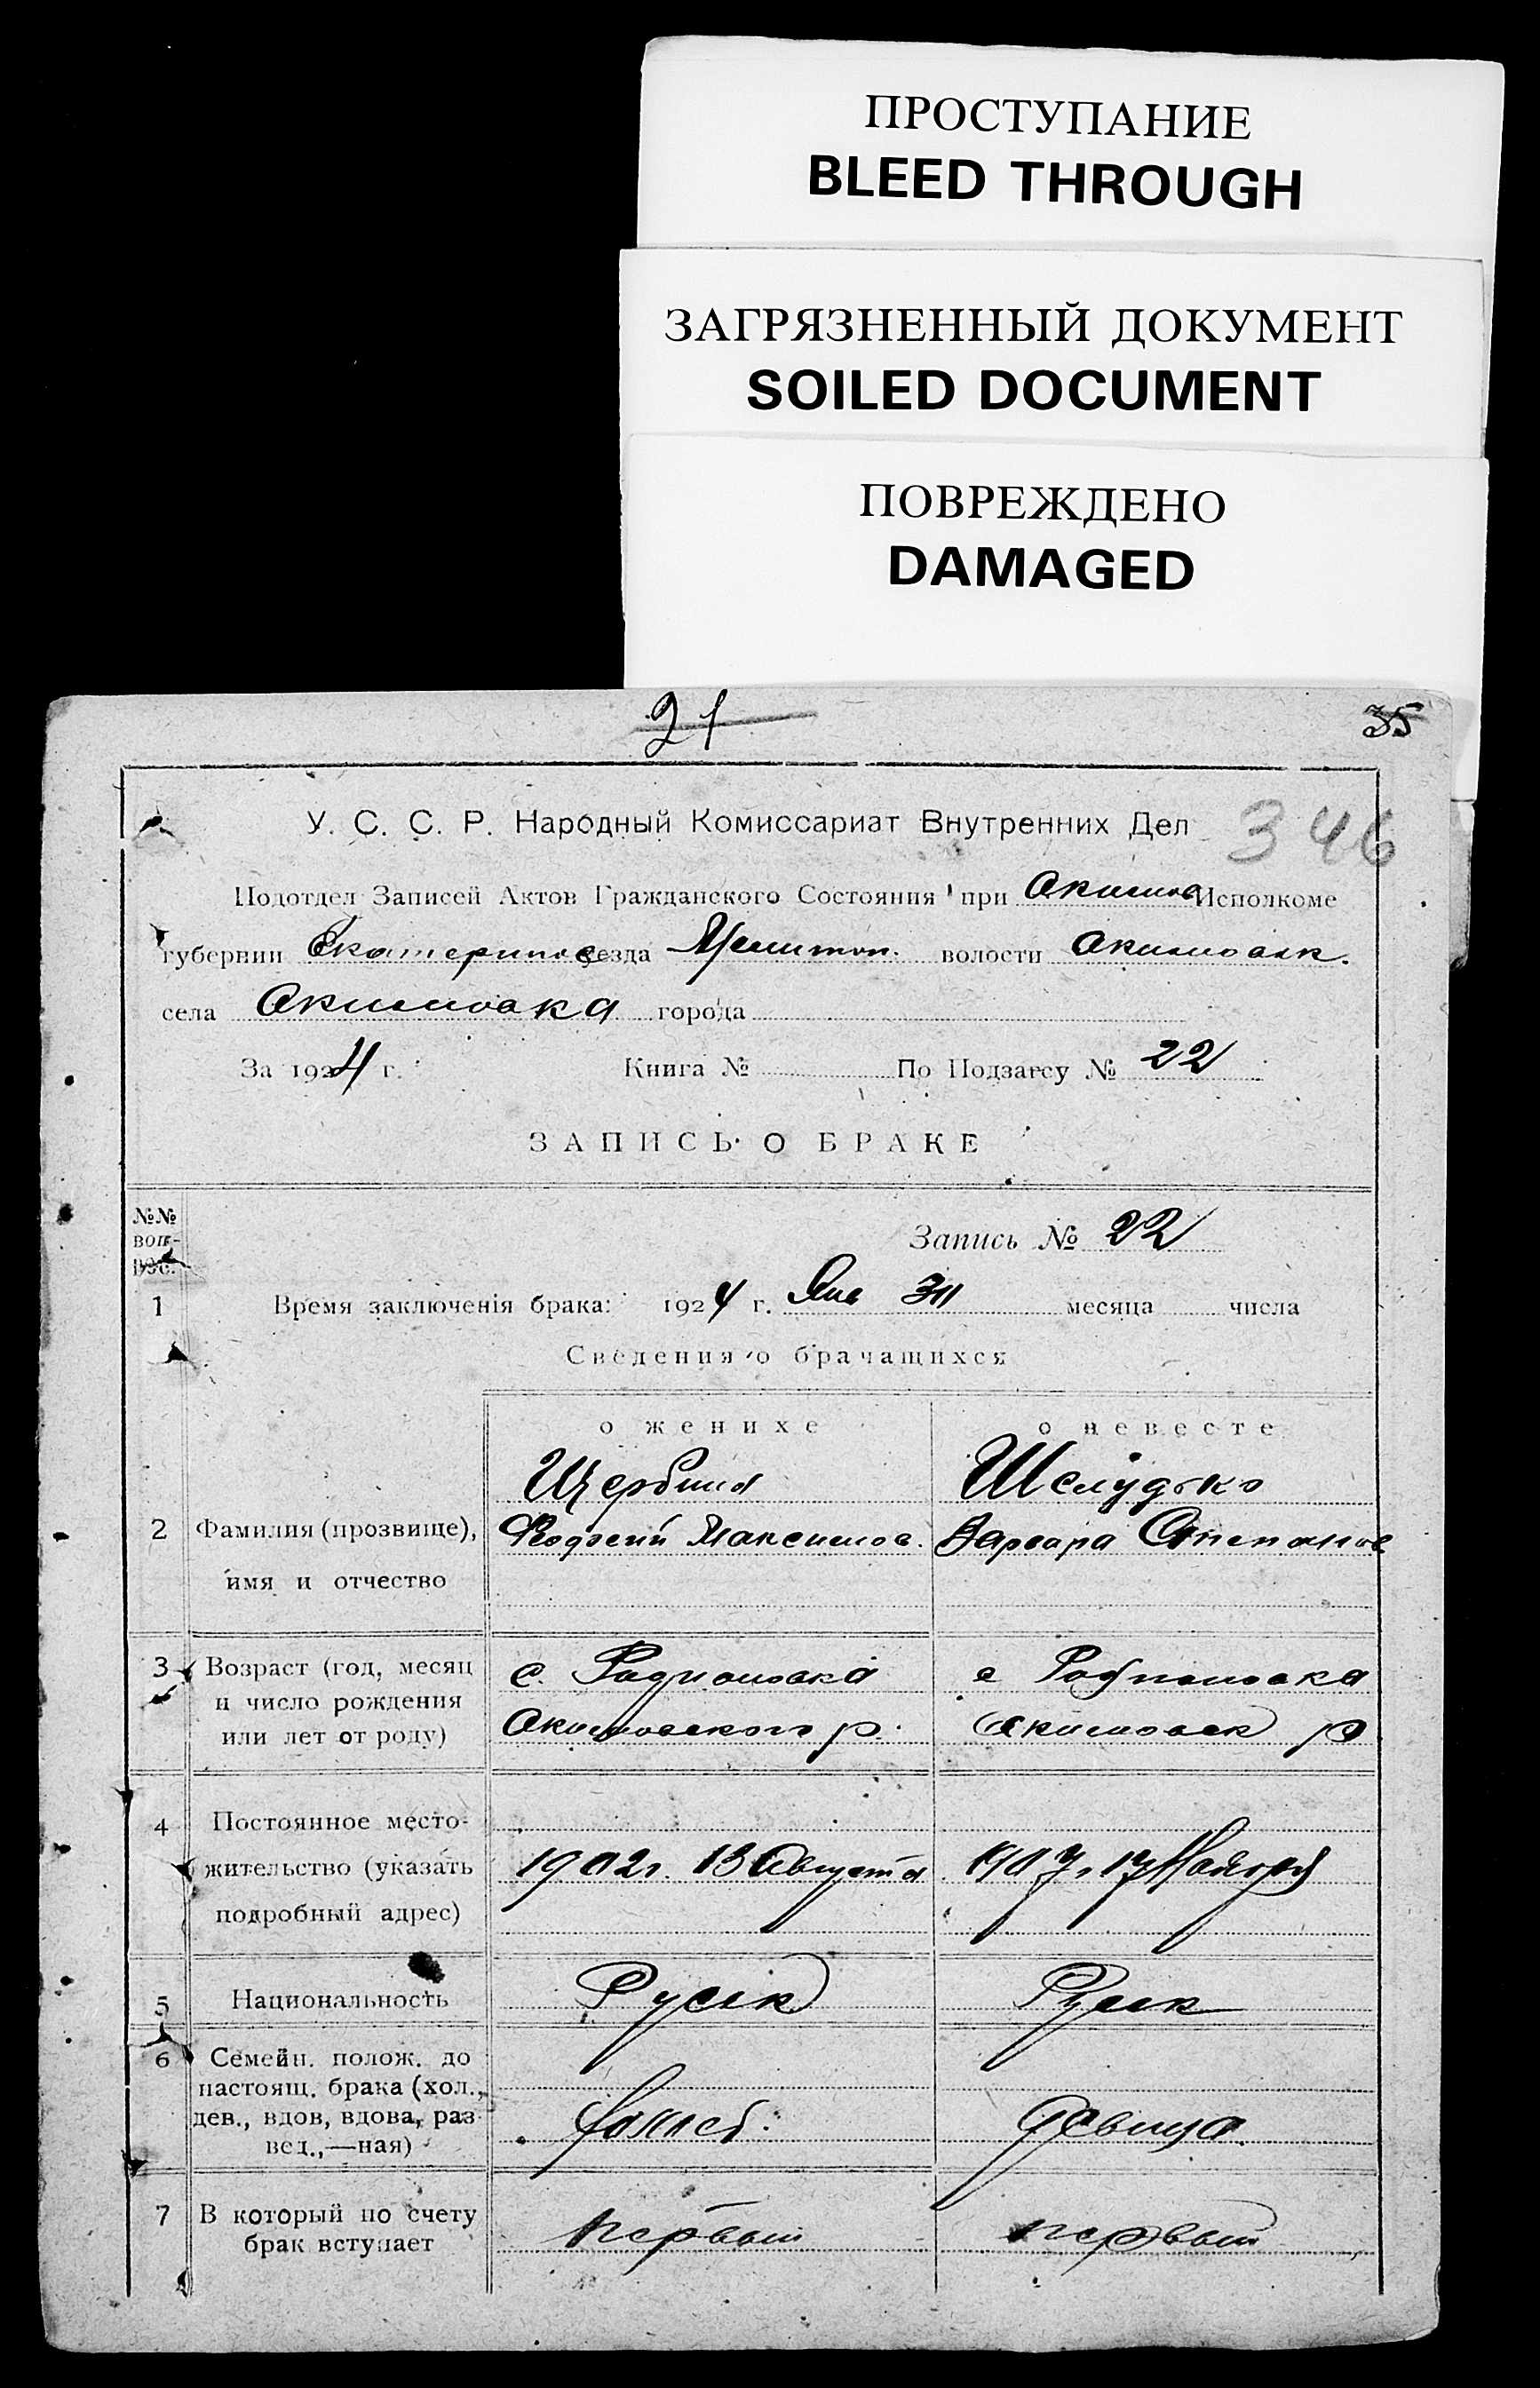 ПРОСТУПАНИЕ
BLEED THROUGH
ЗАГРЯЗНЕННЫЙ ДОКУМЕНТ
SOILED DOCUMENT
ПОВРЕЖДЕНО
DAMAGED
21
35
У. С. С. Р. Народный Комиссариат Внутренних Дел
346
Подотдел Записей Актов Гражданского Состояния при Акимов Исполкоме
губернии Екатеринос уезда Мелитоп. волости Акимовск.
села Акимовка города
За 1924 г. Книга № По Подзагсу № 22
ЗАПИСЬ О БРАКЕ
№№
воп-
рос.
Запись № 22
1 Время заключенія брака: 1924 г. Янв 30 месяца числа
Сведения о брачащихся
о женихе о невесте
Щербина Шелудько
2 Фамилия (прозвище), Феодосий Максимов. Варвара Степанов
имя и отчество
3 Возраст (год, месяц с. Родионовка с Родионовка
и число рождения
или лет от роду) Акимовского р. Акимовск р
4 Постоянное место-
жительство (указать 1902г. 13 Августа 1907, 17 Ноября
подробный адрес)
5 Национальность Русск Русск
6 Семейн. полож. до
настоящ. брака (хол.,
дев., вдов, вдова, раз- холост. девица.
вед.,—ная)
7 В который по счету первый первый
брак вступает